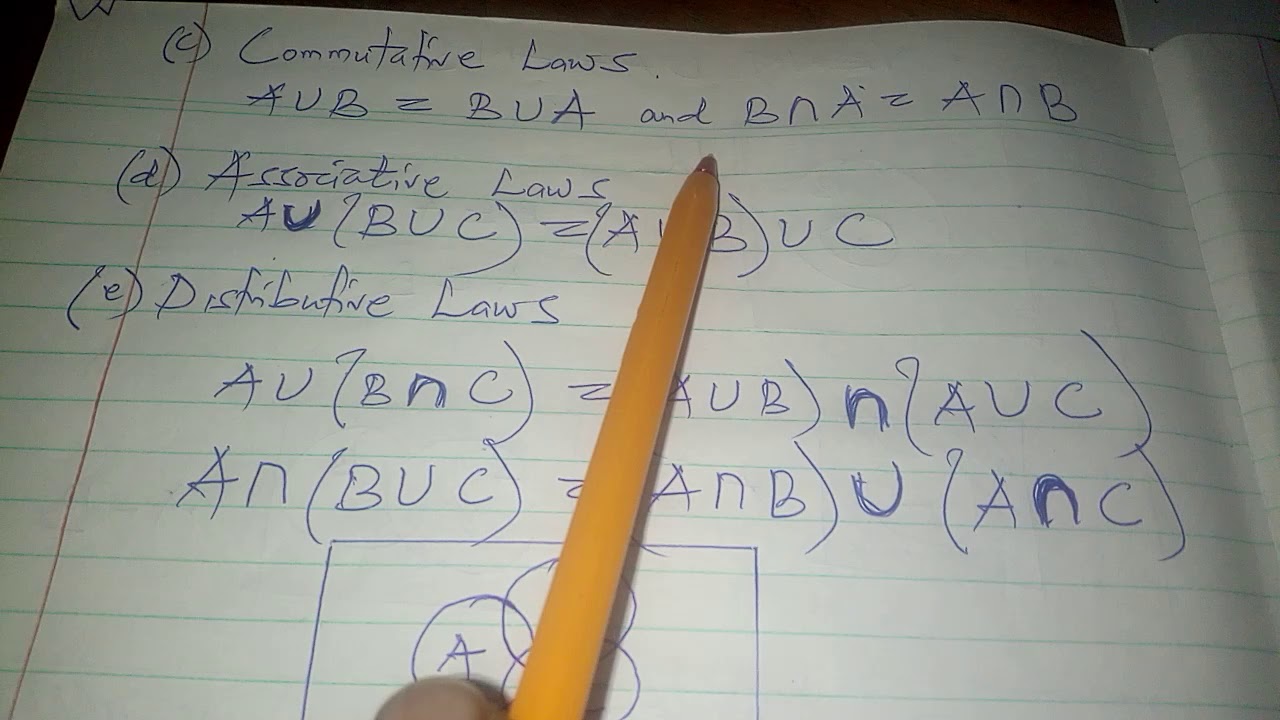 (c) Commutative Laws.
A∪B = B∪A and B∩A = A∩B
(d) Associative Laws
A∪(B∪C) = (A∪B)∪C
(e) Distributive Laws
A∪(B∩C) = A∪B)∩(A∪C)
A∩(B∪C) = A∩B)∪(A∩C)
A